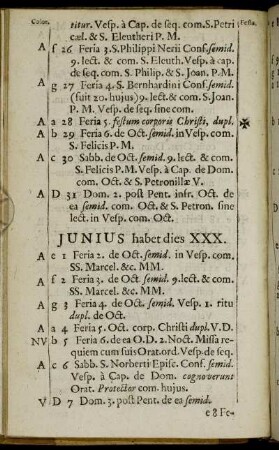 Color.
Festa.
titur. Vesp. à Cap. de seq. com. S. Petri
cæl. & S. Eleutheri P. M.
A f 26 Feria 3. S. Philippi Nerii Conf. semid.
9. lect. & com. S. Eleuth. Vesp. à cap.
de seq. com. S. Philip. & S. Joan. P. M.
A g 27 Feria 4. S. Bernhardini Conf. semid.
(fuit 20. hujus) 9. lect. & com. S. Joan.
P. M. Vesp. de seq. sine com.
A a 28 Feria 5. festum corporis Christi, dupl. ✠
A b 29 Feria 6. de Oct. semid. in Vesp. com.
S. Felicis P. M.
A c 30 Sabb. de Oct. semid. 9. lect. & com.
S. Felicis P. M. Vesp. à Cap. de Dom.
com. Oct. & S. Petronillæ V.
A D 31 Dom. 2. post Pent. infr. Oct. de
ea semid. com. Oct. & S. Petron. sine
lect. in Vesp. com. Oct.
JUNIUS habet dies XXX.
A e 1 Feria 2. de Oct. semid. in Vesp. com.
SS. Marcel. &c. MM.
A f 2 Feria 3. de Oct. semid. 9. lect. & com.
SS. Marcel. &c. MM.
A g 3 Feria 4. de Oct. semid. Vesp. 1. ritu
dupl. de Oct.
A a 4 Feria 5. Oct. corp. Christi dupl. V. D.
NV b 5 Feria 6. de ea O. D. 2. Noct. Missa re-
quiem cum suis Orat. ord. Vesp. de seq.
A c 6 Sabb. S. Norberti Episc. Conf. semid.
Vesp. à Cap. de Dom. cognoverunt
Orat. Protector com. hujus.
V D 7 Dom. 3. post Pent. de ea semid.
e 8 Fe-